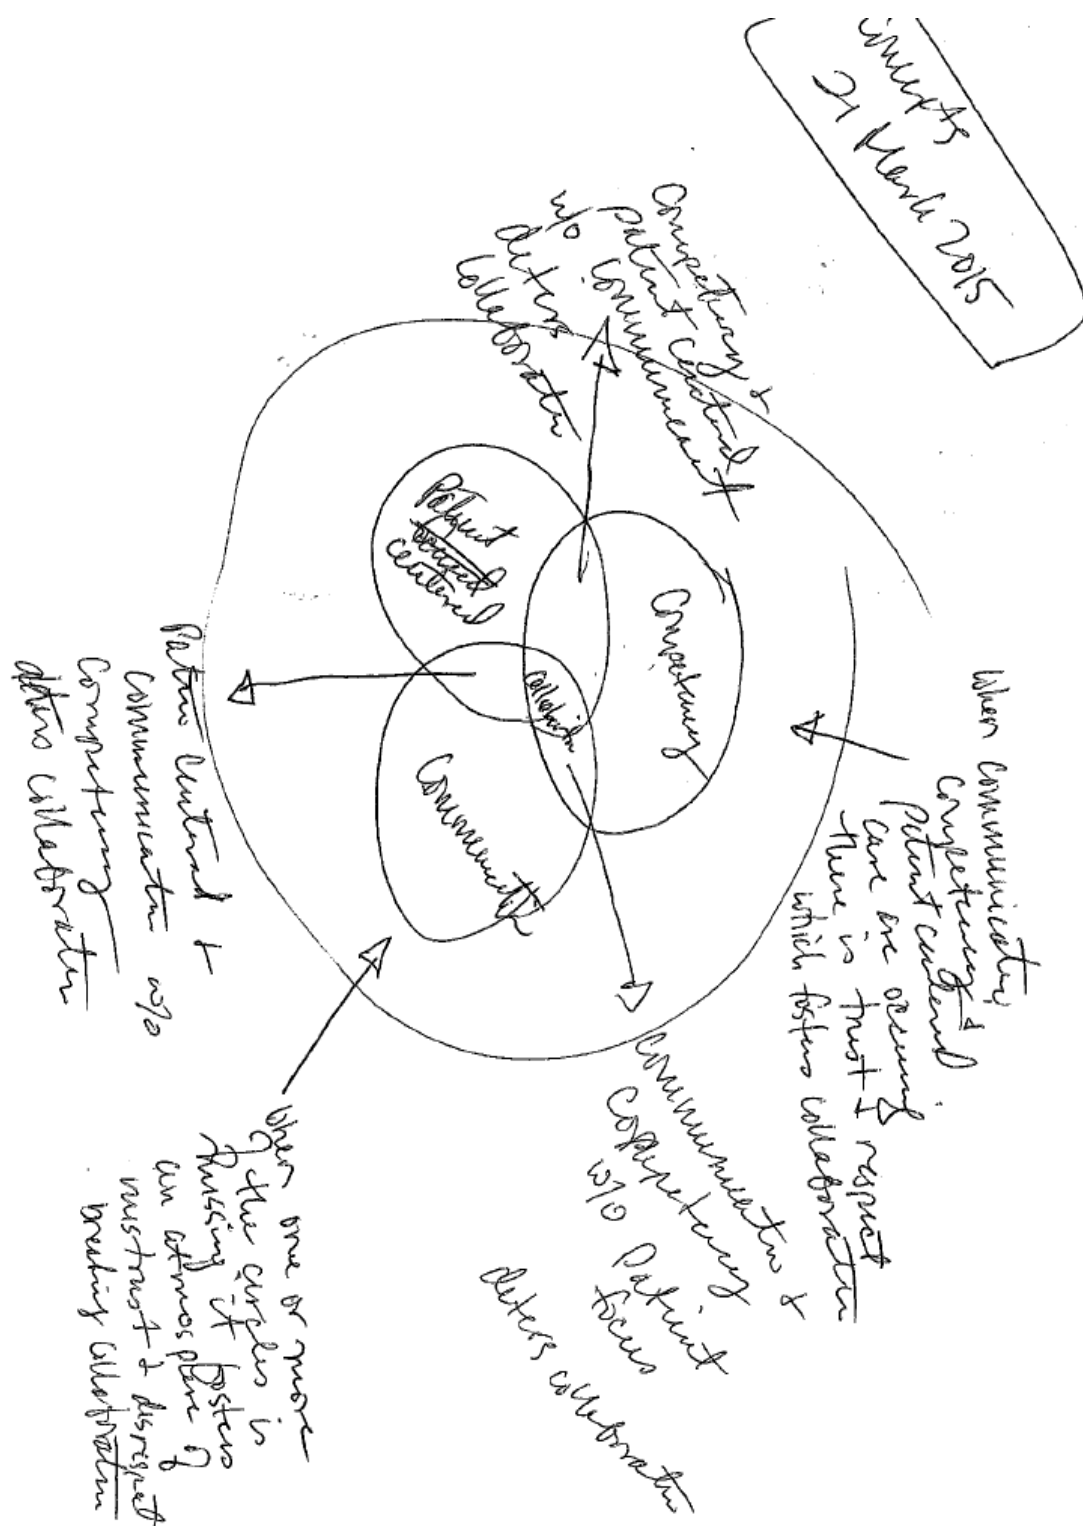 Concepts
21 March 2015
Competency &
Patient centered
w/o communicat
deters
collaboratn
Patient
focused
centered
Competency
collabratn
Communicatn
When communicatn,
competency &
patient centered
care are occurring
there is trust & respect
which fosters collaboratn
Communicatn &
Competency
w/o Patient
focus
deters collaboratn
Patien Centered +
communicatn w/o
Competency
deters collaboratn
When one or more
of the circles is
missing it fosters
an atmosphere of
mistrust & disrespect
breaking collaboratn